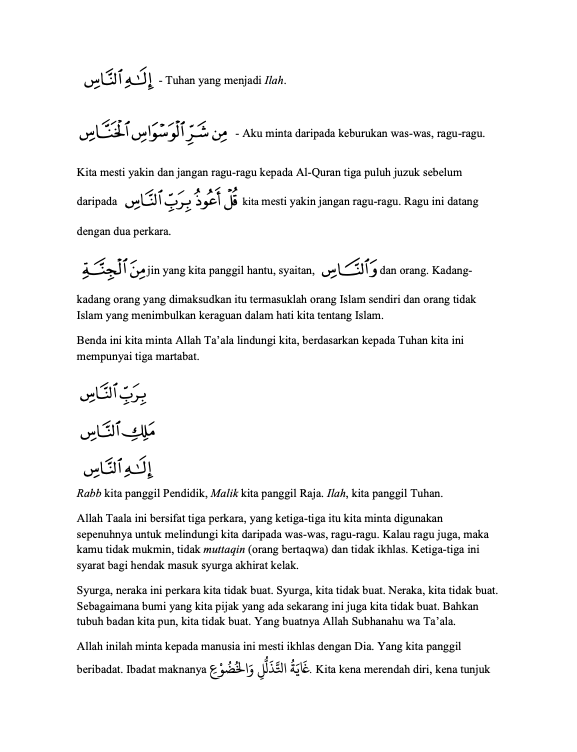 إِلَـٰهِ ٱلنَّاسِ - Tuhan yang menjadi Ilah.
مِن شَرِّ ٱلْوَسْوَاسِ ٱلْخَنَّاسِ - Aku minta daripada keburukan was-was, ragu-ragu.
Kita mesti yakin dan jangan ragu-ragu kepada Al-Quran tiga puluh juzuk sebelum
daripada قُلْ أَعُوذُ بِرَبِّ ٱلنَّاسِ kita mesti yakin jangan ragu-ragu. Ragu ini datang
dengan dua perkara.
مِنَ ٱلْجِنَّةِ jin yang kita panggil hantu, syaitan, وَٱلنَّاسِ dan orang. Kadang-
kadang orang yang dimaksudkan itu termasuklah orang Islam sendiri dan orang tidak
Islam yang menimbulkan keraguan dalam hati kita tentang Islam.
Benda ini kita minta Allah Ta’ala lindungi kita, berdasarkan kepada Tuhan kita ini
mempunyai tiga martabat.
بِرَبِّ ٱلنَّاسِ
مَلِكِ ٱلنَّاسِ
إِلَـٰهِ ٱلنَّاسِ
Rabb kita panggil Pendidik, Malik kita panggil Raja. Ilah, kita panggil Tuhan.
Allah Taala ini bersifat tiga perkara, yang ketiga-tiga itu kita minta digunakan
sepenuhnya untuk melindungi kita daripada was-was, ragu-ragu. Kalau ragu juga, maka
kamu tidak mukmin, tidak muttaqin (orang bertaqwa) dan tidak ikhlas. Ketiga-tiga ini
syarat bagi hendak masuk syurga akhirat kelak.
Syurga, neraka ini perkara kita tidak buat. Syurga, kita tidak buat. Neraka, kita tidak buat.
Sebagaimana bumi yang kita pijak yang ada sekarang ini juga kita tidak buat. Bahkan
tubuh badan kita pun, kita tidak buat. Yang buatnya Allah Subhanahu wa Ta’ala.
Allah inilah minta kepada manusia ini mesti ikhlas dengan Dia. Yang kita panggil
beribadat. Ibadat maknanya غَايَةُ التَّذَلُّلِ وَالْخُضُوْعِ. Kita kena merendah diri, kena tunjuk